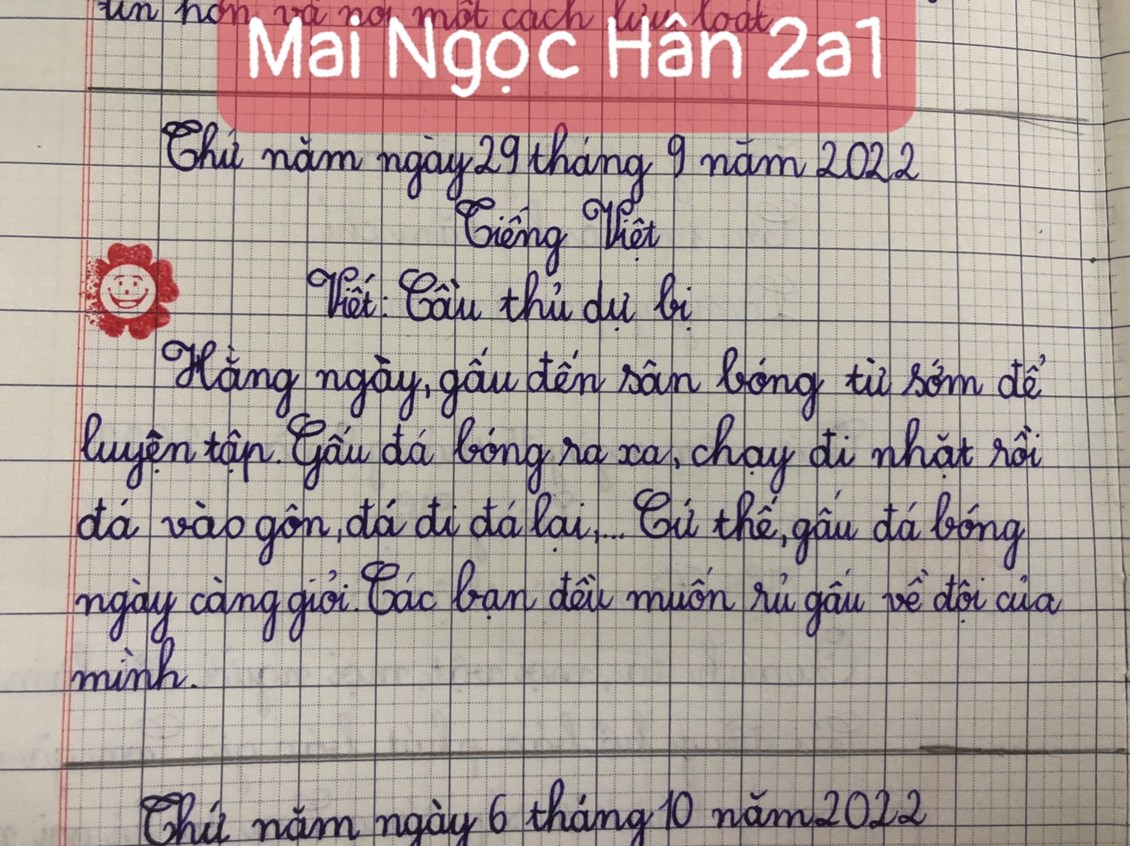 tin hơn và nói một cách lưu loát
Mai Ngọc Hân 2a1
Thứ năm ngày 29 tháng 9 năm 2022
Tiếng Việt
Viết: Cầu thủ dự bị
Hằng ngày, gấu đến sân bóng từ sớm để
luyện tập. Gấu đá bóng ra xa, chạy đi nhặt rồi
đá vào gôn, đá đi đá lại,... Cứ thế, gấu đá bóng
ngày càng giỏi. Các bạn đều muốn rủ gấu về đội của
mình.
Thứ năm ngày 6 tháng 10 năm 2022